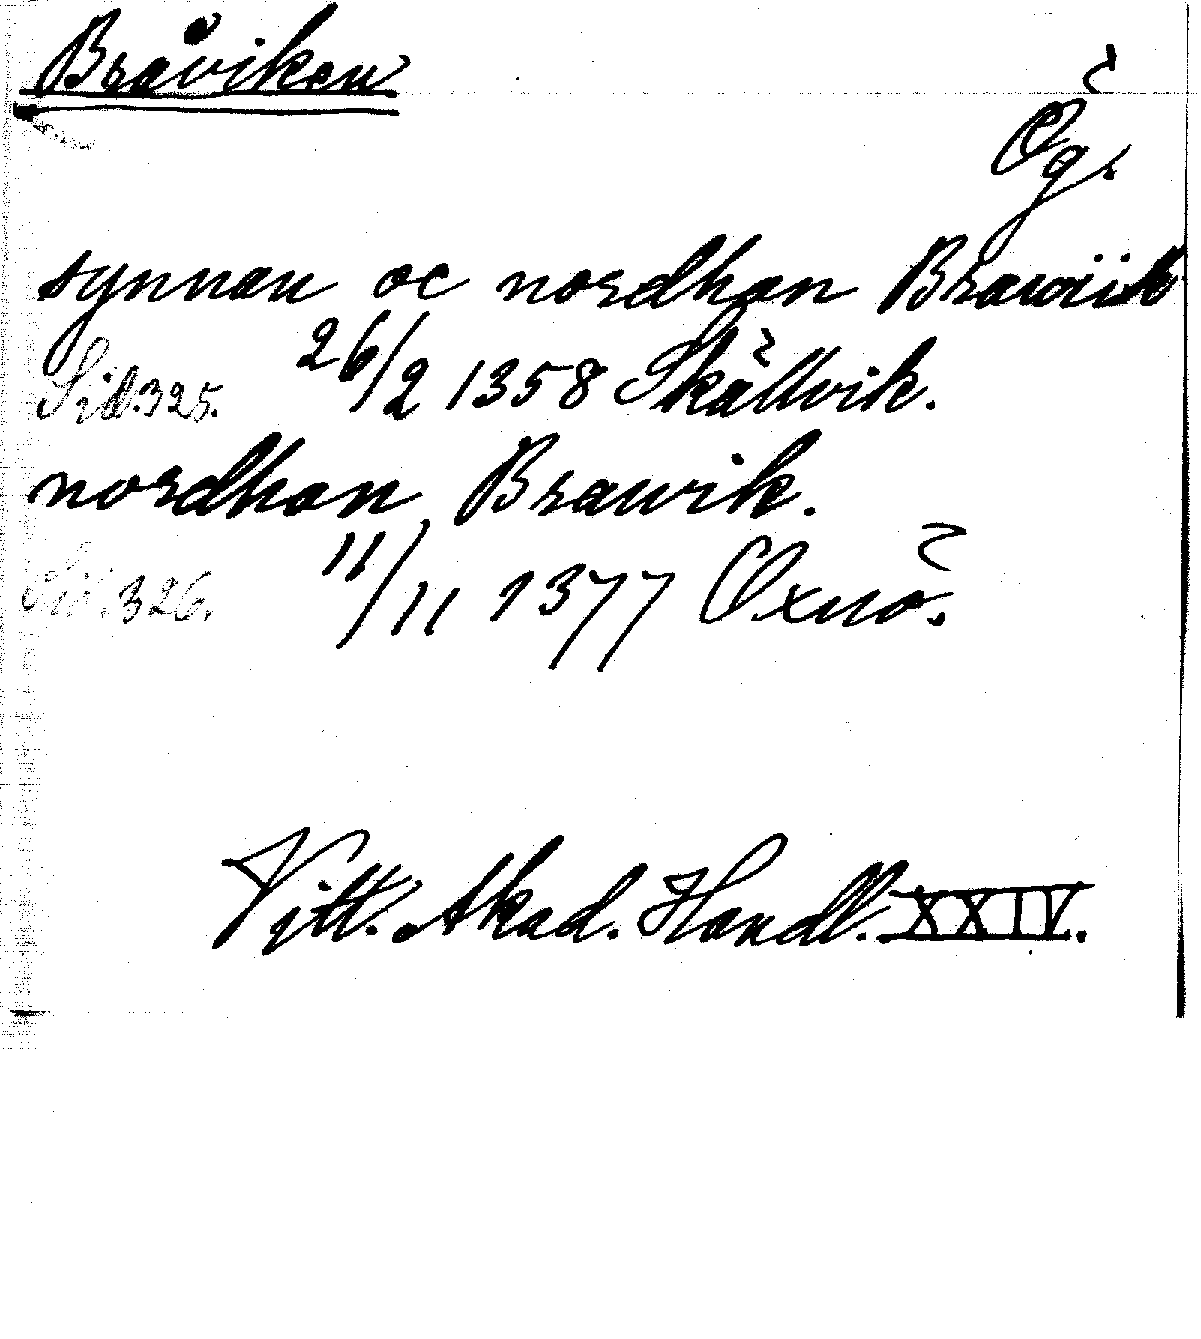 Bråviken
Ög.
synnan oc nordhan Brawiik
Sid. 325. 26/2 1358 Skällvik.
nordhan Brawik.
Sid. 326. 11/11 1377 Oxnö.
Vitt. Akad. Handl. XXIV.